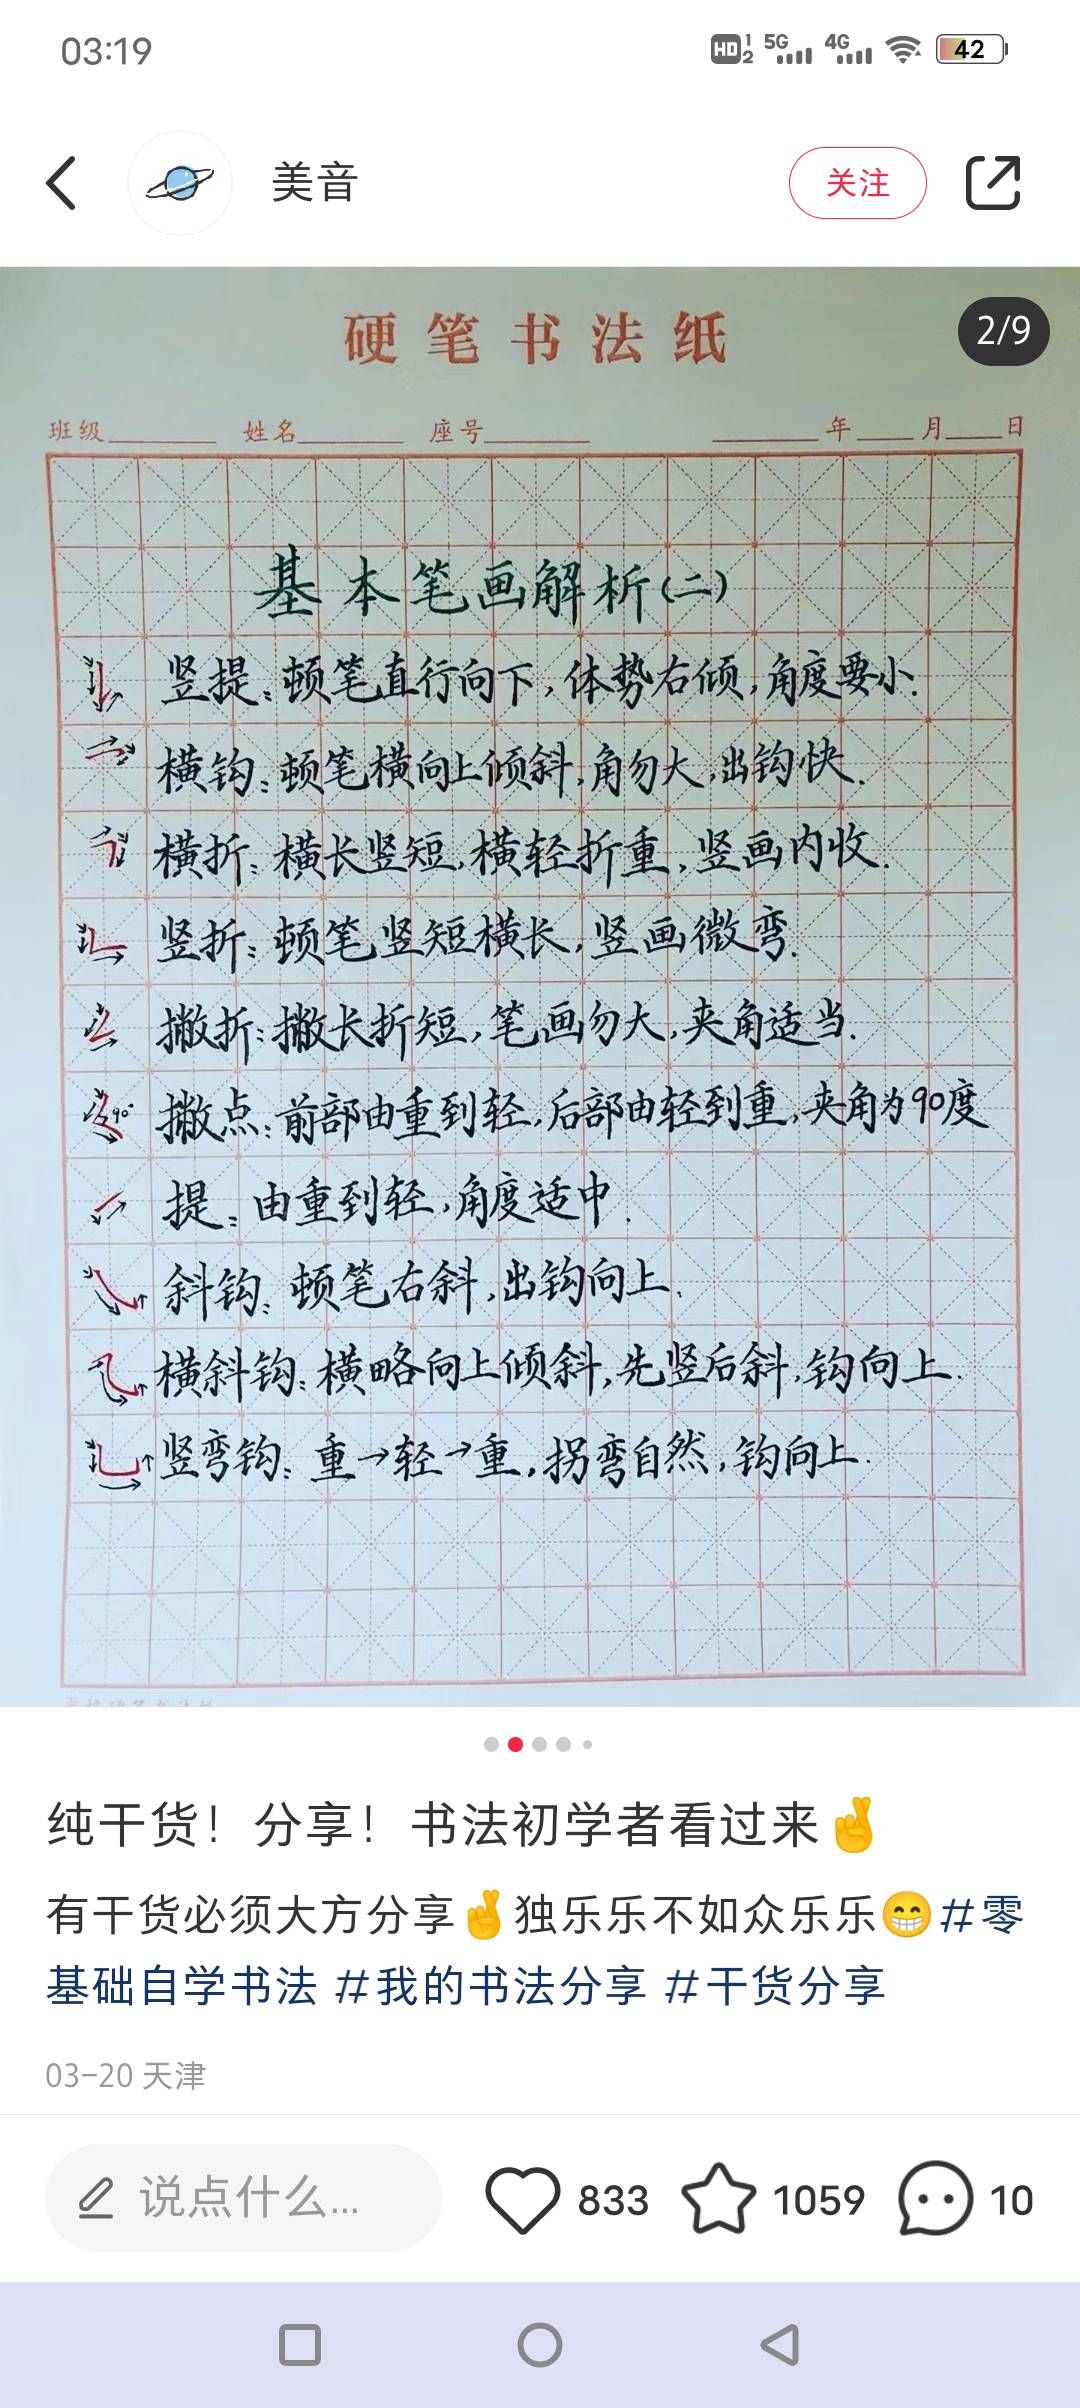 03:19
HD 1 2 5G 4G 42
美音
关注
硬笔书法纸
2/9
班级 姓名 座号 年 月 日
基本笔画解析(二)
竖提:顿笔直行向下,体势右倾,角度要小.
横钩:顿笔横向上倾斜,角勿大,出钩快.
横折:横长竖短,横轻折重,竖画内收.
竖折:顿笔竖短横长,竖画微弯.
撇折:撇长折短,笔画勿大,夹角适当.
90° 撇点:前部由重到轻,后部由轻到重,夹角为90度
提:由重到轻,角度适中.
斜钩:顿笔右斜,出钩向上.
横斜钩:横略向上倾斜,先竖后斜,钩向上.
竖弯钩:重→轻→重,拐弯自然,钩向上.
纯干货！分享！书法初学者看过来🤞
有干货必须大方分享🤞独乐乐不如众乐乐😁#零
基础自学书法 #我的书法分享 #干货分享
03-20 天津
说点什么... 833 1059 10